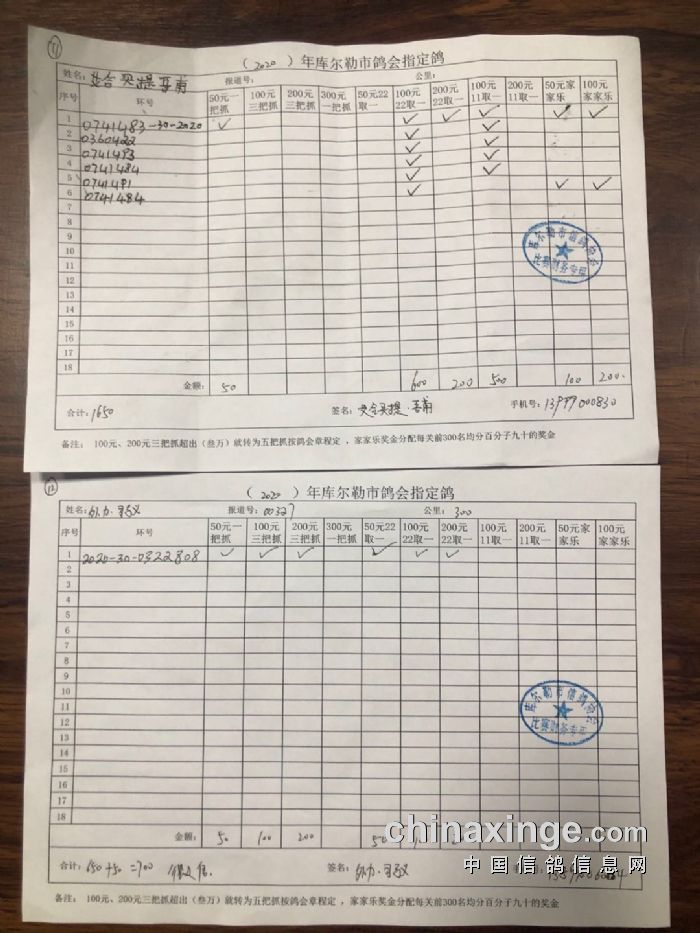 11
（ 2020 ）年库尔勒市鸽会指定鸽
姓名： 报道号： 公里：
序号 环号 50元一把抓 100元三把抓 200元三把抓 300元一把抓 50元22取一 100元22取一 200元22取一 100元11取一 200元11取一 50元家家乐 100元家家乐
1 0741483-30-2020 ✓ ✓ ✓ ✓ ✓ ✓
2 0360422 ✓ ✓
3 0741493 ✓ ✓
4 0741484 ✓ ✓
5 0741491 ✓ ✓
6 0741484 ✓ ✓ ✓
7
8
9
10
11
12
13
14
15
16
17
18
库尔勒市信鸽协会
比赛财务专用
金额： 50 600 200 500 100 200
合计：1650 签名： 手机号：
备注： 100元、200元三把抓超出（叁万）就转为五把抓按鸽会章程定 ，家家乐奖金分配每关前300名均分百分子九十的奖金
12
（ 2020 ）年库尔勒市鸽会指定鸽
姓名： 报道号：00327 公里：300
序号 环号 50元一把抓 100元三把抓 200元三把抓 300元一把抓 50元22取一 100元22取一 200元22取一 100元11取一 200元11取一 50元家家乐 100元家家乐
1 2020-30-0322808 ✓ ✓ ✓ ✓ ✓ ✓
2
3
4
5
6
7
8
9
10
11
12
13
14
15
16
17
18
库尔勒市信鸽协会
比赛财务专用
金额： 50 100 200 50
合计：650+50=700 签名：
备注： 100元、200元三把抓超出（叁万）就转为五把抓按鸽会章程定 ，家家乐奖金分配每关前300名均分百分子九十的奖金
chinaxinge.com
中国信鸽信息网